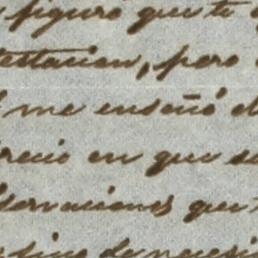 figuro que te
testacion, pero
me enseñó el
recio en que se
servaciones que
de